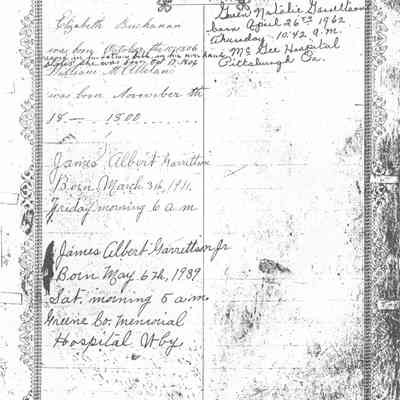 Elizabeth Buchanan
was born October the
she was born Oct 17, 1806
William McClelland
was born November the
18 — 1800 ......
James Albert Garrettson
Born March 3th, 1911,
Friday morning 6 a.m
James Albert Garrettson Jr
Born May 6th, 1939
Sat. morning 5 a.m.
Greene Co. Memorial
Hospital W'by
Natalie Garrettson
born April 26th 1962
Thursday 10:42 a.m
McGee Hospital
Pittsburgh Pa.